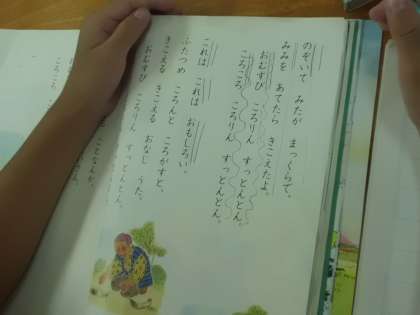 のぞいて みたが まっくらで、
みみを あてたら きこえたよ。
おむすび ころりん すっとんとん。
ころころ ころりん すっとんとん。
これは これは おもしろい。
ふたつめ ころんと ころがすと、
きこえる きこえる おなじ うた。
おむすび ころりん すっとんとん。